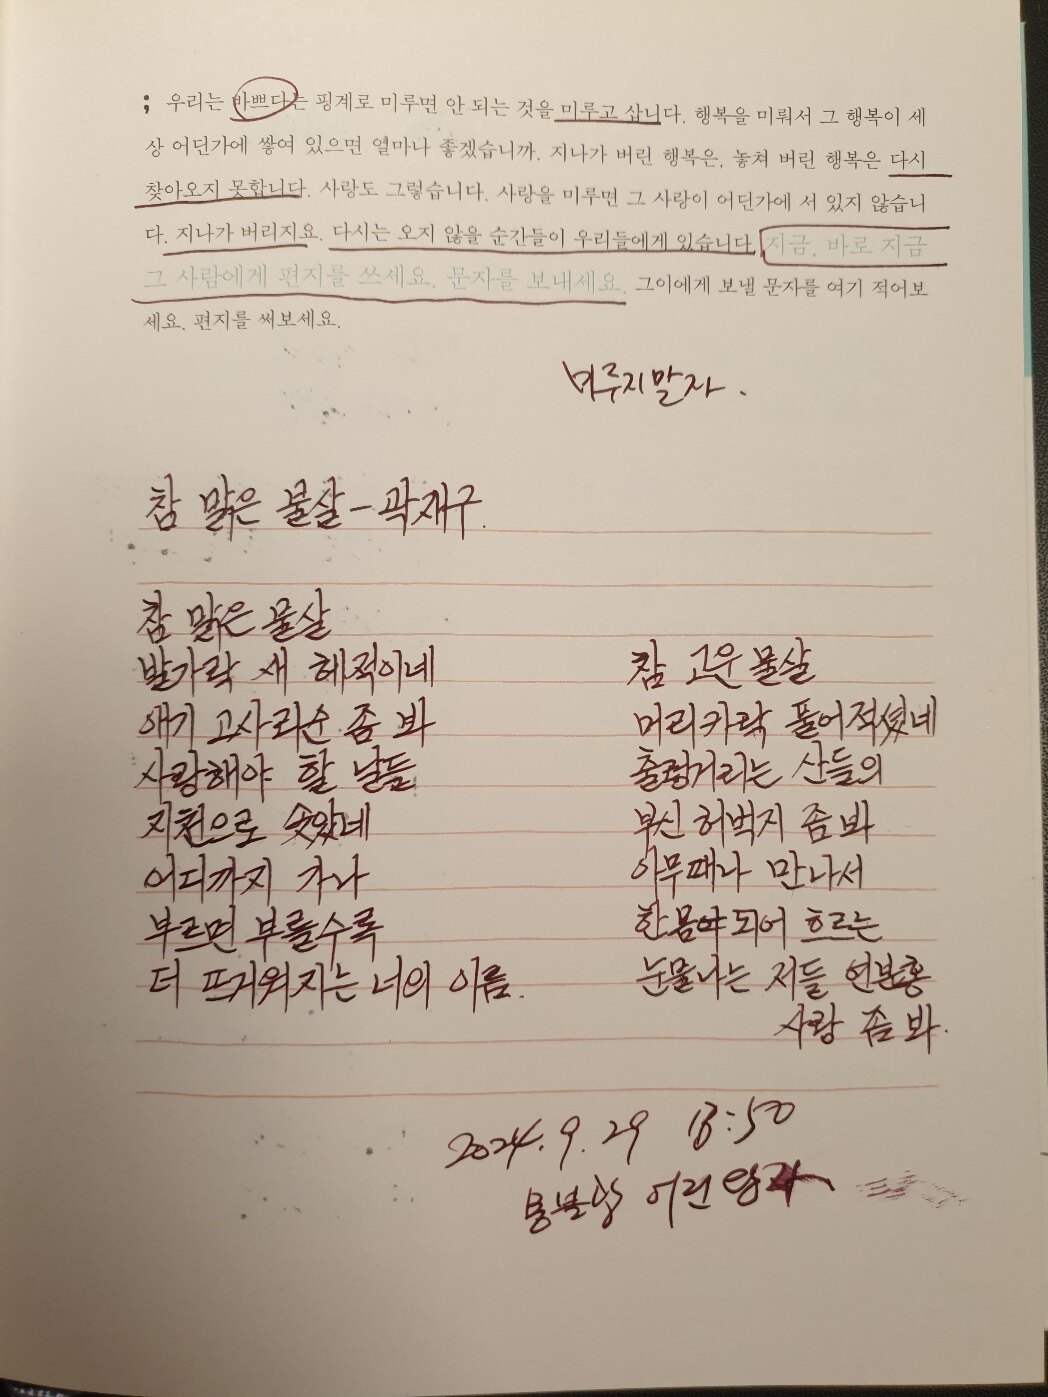 ; 우리는 바쁘다는 핑계로 미루면 안 되는 것을 미루고 삽니다. 행복을 미뤄서 그 행복이 세
상 어딘가에 쌓여 있으면 얼마나 좋겠습니까. 지나가 버린 행복은, 놓쳐 버린 행복은 다시
찾아오지 못합니다. 사랑도 그렇습니다. 사랑을 미루면 그 사랑이 어딘가에 서 있지 않습니
다. 지나가 버리지요. 다시는 오지 않을 순간들이 우리들에게 있습니다. 지금, 바로 지금
그 사람에게 편지를 쓰세요. 문자를 보내세요. 그이에게 보낼 문자를 여기 적어보
세요. 편지를 써보세요.
미루지말자.
참 맑은 물살-곽재구.
참 맑은 물살
발가락 새 헤적이네
애기 고사리순 좀 봐
사랑해야 할 날들
지천으로 솟았네
어디까지 가나
부르면 부를수록
더 뜨거워지는 너의 이름.
참 고운 물살
머리카락 풀어적셨네
출렁거리는 산들의
부신 허벅지 좀 봐
아무때나 만나서
한몸되어 흐르는
눈물나는 저들 연분홍
사랑 좀 봐.
2024. 9. 29 13:50
어린왕자